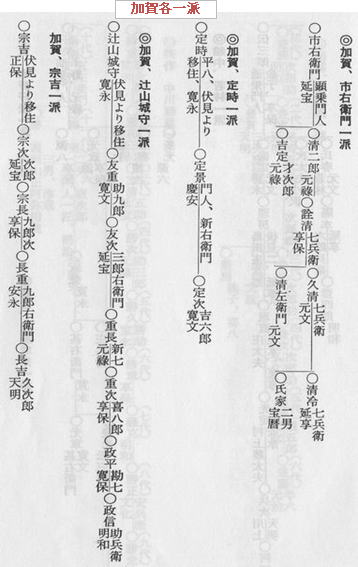 加賀各一派
◎加賀、市右衛門一派
○市右衛門 顕乗門人 延宝
○清二郎 元禄
○詮清 七兵衛 享保
○久清 七兵衛 元文
○清冷 七兵衛 延享
○吉定 才次郎 元禄
○清左衛門 元文
○氏家 二男 宝暦
◎加賀、定時一派
○定時 平八、伏見より移住、寛永
○定景 門人、新右衛門 慶安
○定次 吉六郎 寛文
◎加賀、辻山城守一派
○辻山城守 伏見より移住 寛永
○友重 助九郎 寛文
○友次 三郎右衛門 延宝
○重長 新七 元禄
○重次 喜八郎 享保
○政平 勘七 寛保
○政信 助兵衛 明和
加賀、宗吉一派
○宗吉 伏見より移住 正保
○宗次 次郎 延宝
○宗長 九郎次 享保
○長重 九郎右衛門 安永
○長吉 久次郎 天明